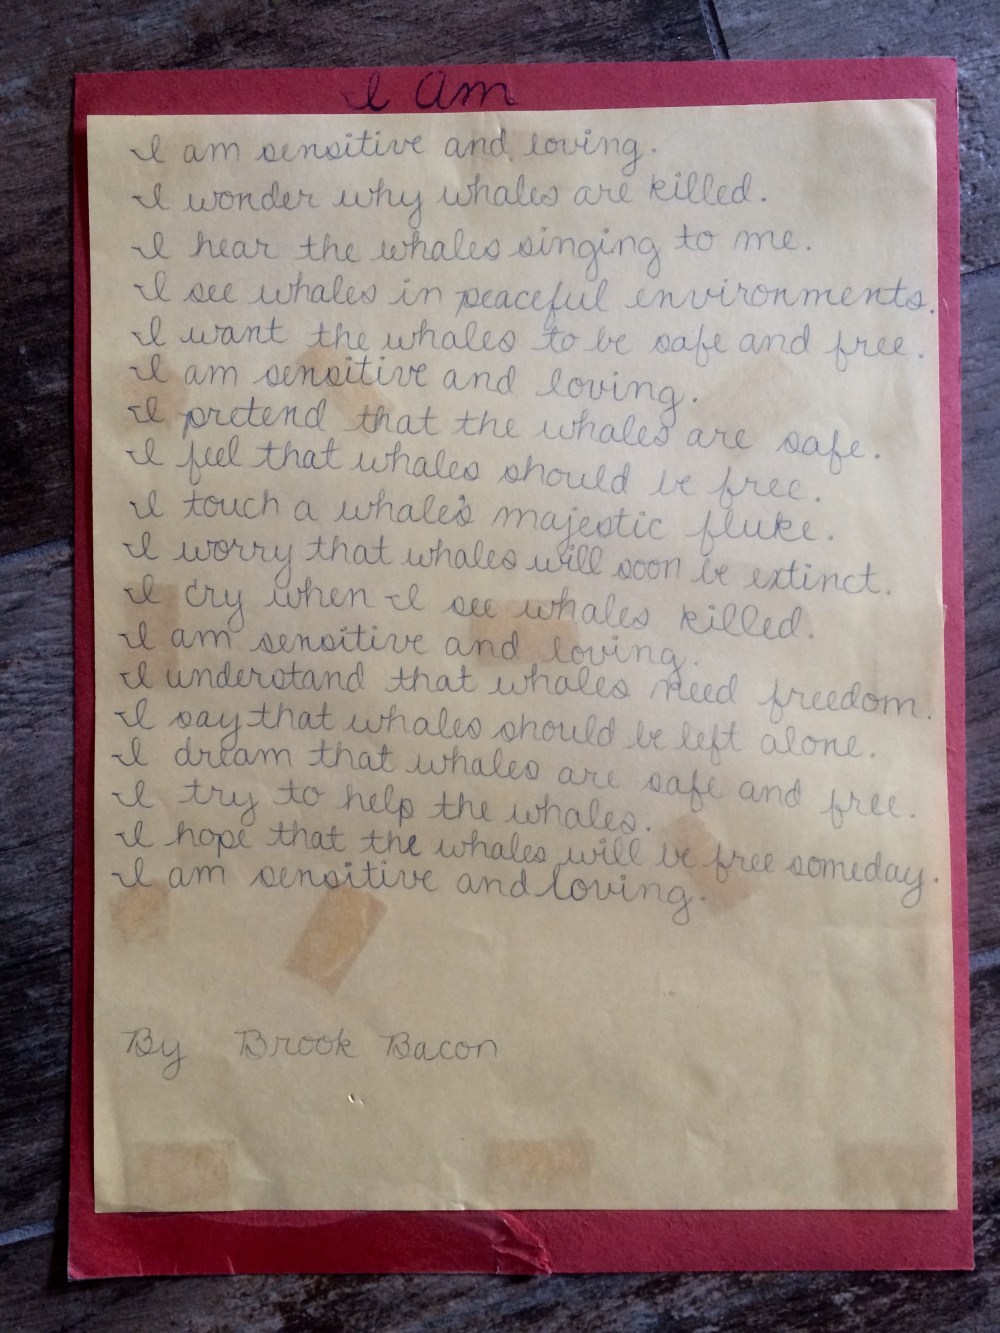 I Am
I am sensitive and loving.
I wonder why whales are killed.
I hear the whales singing to me.
I see whales in peaceful environments.
I want the whales to be safe and free.
I am sensitive and loving.
I pretend that the whales are safe.
I feel that whales should be free.
I touch a whale's majestic fluke.
I worry that whales will soon be extinct.
I cry when I see whales killed.
I am sensitive and loving.
I understand that whales need freedom.
I say that whales should be left alone.
I dream that whales are safe and free.
I try to help the whales.
I hope that the whales will be free someday.
I am sensitive and loving.
By Brook Bacon